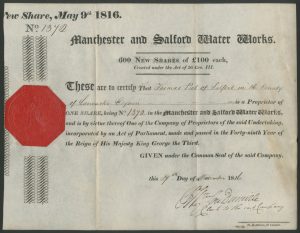 New Share, May 9th 1816.
No 1372
Manchester and Salford Water Works.
600 NEW SHARES of £100 each,
Created under the Act of 56 Geo. III.
These are to certify That Thomas Peel of Salford in the County
of Lancaster is a Proprietor of
ONE SHARE, being No 1372, in the Manchester and Salford Water Works,
and is by virtue thereof One of the Company of Proprietors of the said Undertaking,
incorporated by an Act of Parliament, made and passed in the Forty-ninth Year of
the Reign of His Majesty King George the Third.
GIVEN under the Common Seal of the said Company,
this Day of 1816
Clerk to the said Company